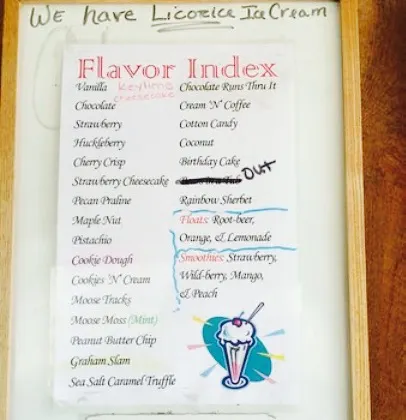 We have Licorice Ice Cream
Flavor Index
Vanilla
Keylime
cheesecake
Chocolate
Strawberry
Huckleberry
Cherry Crisp
Strawberry Cheesecake
Pecan Praline
Maple Nut
Pistachio
Cookie Dough
Cookies 'N' Cream
Moose Tracks
Moose Moss (Mint)
Peanut Butter Chip
Graham Slam
Sea Salt Caramel Truffle
Chocolate Runs Thru It
Cream 'N' Coffee
Cotton Candy
Coconut
Birthday Cake
OUT
Rainbow Sherbet
Floats: Root-beer,
Orange, & Lemonade
Smoothies: Strawberry,
Wild-berry, Mango,
& Peach